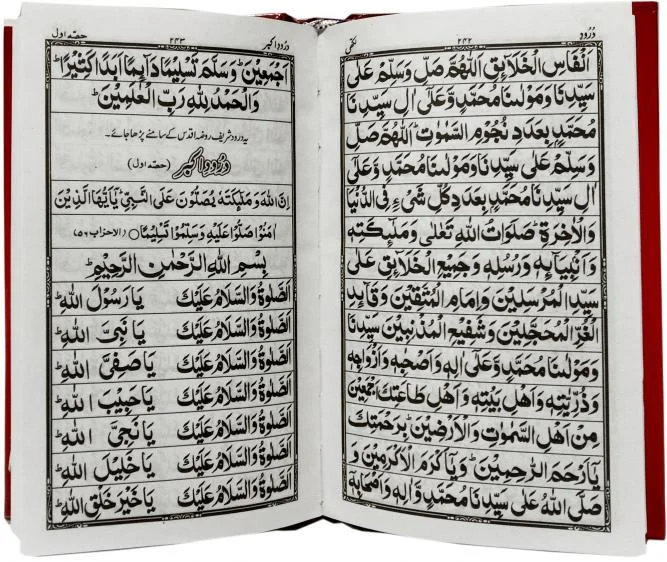 درود ۲۴۲ لکھی
اَنْفَاسِ الْخَلَائِقِ اَللّٰهُمَّ صَلِّ وَسَلِّمْ عَلٰی
سَيِّدِنَا وَمَوْلٰىنَا مُحَمَّدٍ وَّعَلٰٓی اٰلِ سَيِّدِنَا
مُحَمَّدٍۢ بِعَدَدِ نُجُوْمِ السَّمٰوٰتِ ط اَللّٰهُمَّ صَلِّ
وَسَلِّمْ عَلٰی سَيِّدِنَا وَمَوْلٰىنَا مُحَمَّدٍ وَّعَلٰٓی
اٰلِ سَيِّدِنَا مُحَمَّدٍۢ بِعَدَدِ كُلِّ شَیْءٍ فِی الدُّنْيَا
وَالْاٰخِرَةِ ط صَلَوَاتُ اللّٰهِ تَعَالٰی وَمَلٰٓئِكَتِهٖ
وَاَنْۢبِيَآئِهٖ وَرُسُلِهٖ وَجَمِيْعِ الْخَلَآئِقِ عَلٰی
سَيِّدِ الْمُرْسَلِيْنَ وَاِمَامِ الْمُتَّقِيْنَ وَقَآئِدِ
الْغُرِّ الْمُحَجَّلِيْنَ وَشَفِيْعِ الْمُذْنِبِيْنَ سَيِّدِنَا
وَمَوْلٰىنَا مُحَمَّدٍ وَّعَلٰٓی اٰلِهٖ وَاَصْحٰبِهٖ وَاَزْوَاجِهٖ
وَذُرِّيّٰتِهٖ وَاَهْلِ بَيْتِهٖ وَاَهْلِ طَاعَتِكَ اَجْمَعِيْنَ
مِنْ اَهْلِ السَّمٰوٰتِ وَالْاَرْضِيْنَ ط بِرَحْمَتِكَ
يَآ اَرْحَمَ الرّٰحِمِيْنَ ط وَيَآ اَكْرَمَ الْاَكْرَمِيْنَ وَ
صَلَّی اللّٰهُ عَلٰی سَيِّدِنَا مُحَمَّدٍ وَّاٰلِهٖ وَاَصْحَابِهٖ
درود اکبر ۲۴۳ حصّہ اول
اَجْمَعِيْنَ ط وَسَلَّمَ تَسْلِيْمًا دَآئِمًا اَبَدًا كَثِيْرًا ط
وَالْحَمْدُ لِلّٰهِ رَبِّ الْعٰلَمِيْنَ ط
یہ درود شریف روضۂ اقدس کے سامنے پڑھا جائے۔
درود اکبر (حصّہ اول)
اِنَّ اللّٰهَ وَمَلٰٓئِكَتَهٗ يُصَلُّوْنَ عَلَی النَّبِیِّ يٰٓاَيُّهَا الَّذِيْنَ
اٰمَنُوْا صَلُّوْا عَلَيْهِ وَسَلِّمُوْا تَسْلِيْمًا ○ (الاحزاب ۵۶)
بِسْمِ اللّٰهِ الرَّحْمٰنِ الرَّحِيْمِ ط
اَلصَّلٰوةُ وَالسَّلَامُ عَلَيْكَ يَا رَسُوْلَ اللّٰهِ ط
اَلصَّلٰوةُ وَالسَّلَامُ عَلَيْكَ يَا نَبِیَّ اللّٰهِ ط
اَلصَّلٰوةُ وَالسَّلَامُ عَلَيْكَ يَا صَفِیَّ اللّٰهِ ط
اَلصَّلٰوةُ وَالسَّلَامُ عَلَيْكَ يَا حَبِيْبَ اللّٰهِ ط
اَلصَّلٰوةُ وَالسَّلَامُ عَلَيْكَ يَا نَجِیَّ اللّٰهِ ط
اَلصَّلٰوةُ وَالسَّلَامُ عَلَيْكَ يَا خَلِيْلَ اللّٰهِ ط
اَلصَّلٰوةُ وَالسَّلَامُ عَلَيْكَ يَا خَيْرَ خَلْقِ اللّٰهِ ط